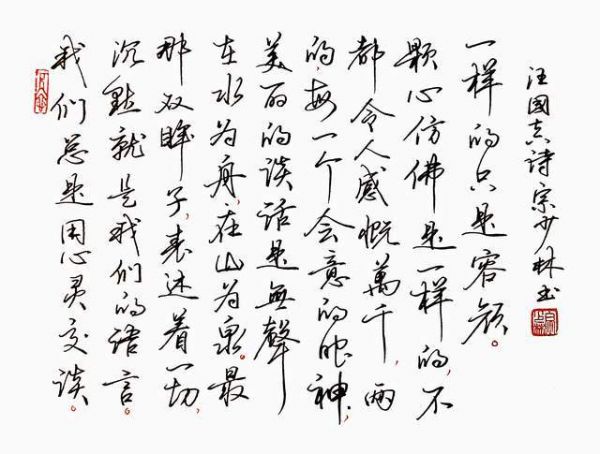 我们总是用心灵交谈。
沉默就是我们的语言。
那双眸子，表述着一切，
在水为舟，在山为泉。最
美丽的谈话是無聲
的，每一个会意的眼神，
都令人感慨萬千，两
颗心仿佛是一样的，不
一样的只是容颜。
汪國真詩宗少林书